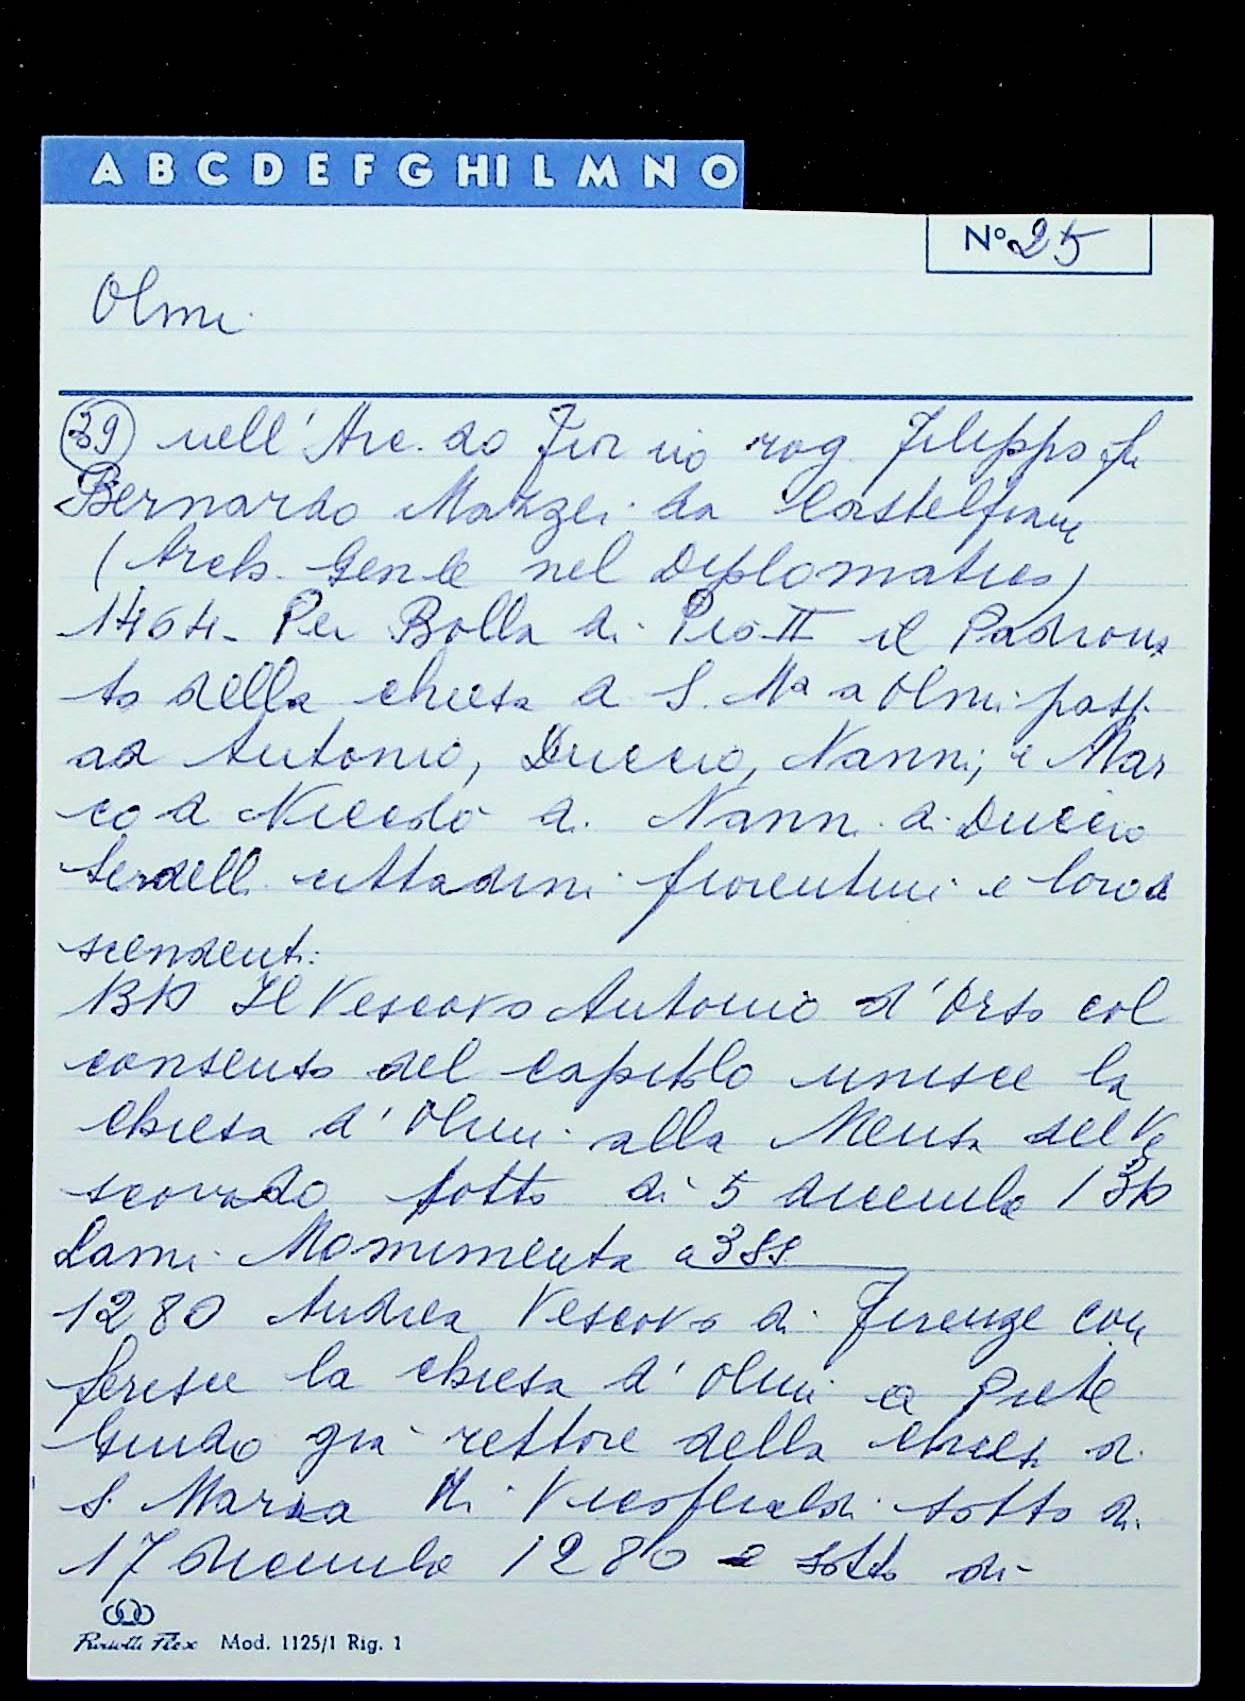 A B C D E F G HI L M N O
N° 25
Olmi
39 nell'Arc. do Fior no rog. Filippo fu
Bernardo Mazzei da Castelfranc
(Arch. Gen le nel Diplomatico)
1464 - Per Bolla di Pio II il Padrona
to della chiesa d S. Ma a Olmi pass.
ad Antonio, Duccio, Nanni, e Mar
co d Niccolò di Nanni di Duccio
Serdelli cittadini fiorentini e loro de
scendenti:
1310 Il Vescovo Antonio d'Orso col
consenso del capitolo unisce la
chiesa d'Olmi alla Mensa del Ve
scovado sotto di 5 dicembre 1310
Lami Monumenta a 388
1280 Andrea Vescovo di Firenze con
ferisce la chiesa d'Olmi a Prete
Guido già rettore della chiesa di
S. Maria di sotto di
17 dicembre 1280 e sotto di
Mod. 1125/1 Rig. 1